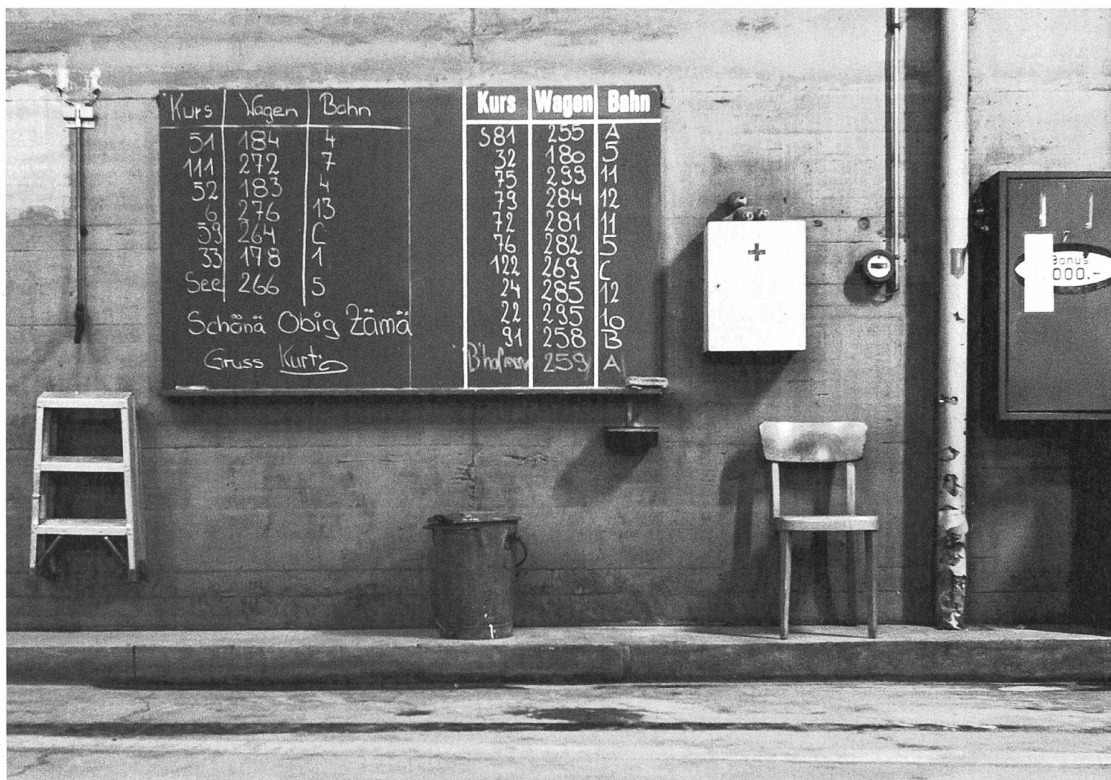 Kurs Wagen Bahn
51 184 4
111 272 7
52 183 4
6 276 13
59 264 C
33 178 1
See 266 5
Schönä Obig Zämä
Gruss Kurt
Kurs Wagen Bahn
S81 255 A
32 180 5
75 299 11
79 284 12
72 281 11
76 282 5
122 269 C
24 285 12
22 295 10
91 258 B
259 A
Bonus
000.-